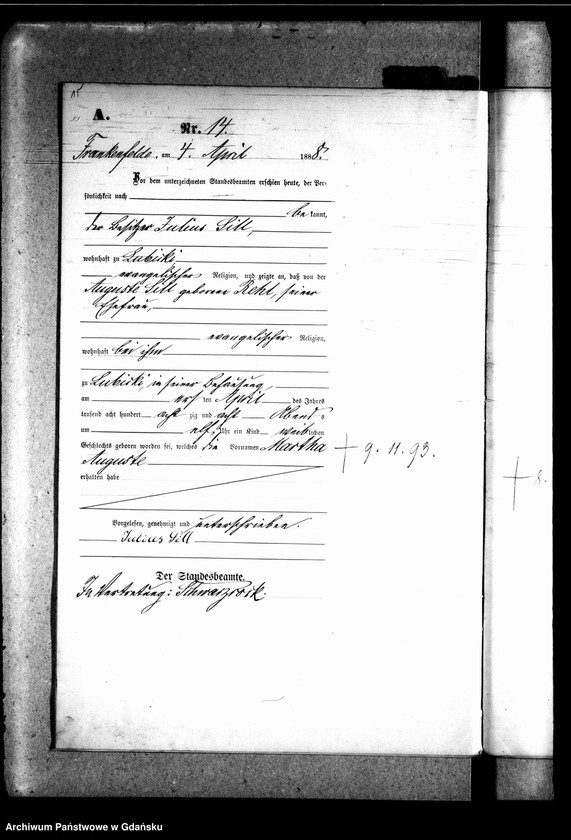 A.
Nr. 14.
Frankenfelde, am 4. April 1888.
Vor dem unterzeichneten Standesbeamten erschien heute, der Per-
sönlichkeit nach
be kannt,
der Besitzer Julius Sill,
wohnhaft zu Lubieki,
evangelischer Religion, und zeigte an, daß von der
Auguste Sill geborene Rehl, seiner
Ehefrau,
evangelischer Religion,
wohnhaft bei ihm
zu Lubieki, in seiner Behausung,
am ers ten April des Jahres
tausend acht hundert acht zig und acht Abend s
um elf Uhr ein Kind weib lichen
Geschlechts geboren worden sei, welches die Vornamen Martha
Auguste
† 9. 11. 93.
† 8.
erhalten habe
Vorgelesen, genehmigt und unterschrieben.
Julius Sill
Der Standesbeamte.
In Vertretung:
Archiwum Państwowe w Gdańsku